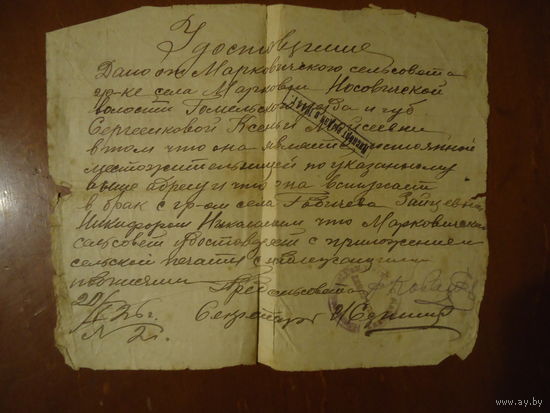 Удостоверение
Дано от Марковичского сельсовета
гр-ке села Марковичи Носовичской
волости Гомельского уезда и губ
Сергеенковой Ксении Моисеевни
в том что она является постоянной
местожительницей по указанному
выше адресу и что она вступает
в брак с гр-ом села Рабичева Зайцевым
Никифором что Марковичский
сельсовет удостоверяет с приложением
сельской печати с
подписями
Пред сельсовета
20/
26 г.
Секретарь
N 2
www.ay.by